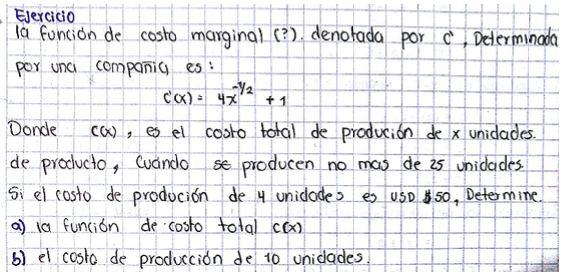 Ejercicio
la función de costo marginal (?). denotada por c', Determinada
por una compañia es:
c'(x) = 4x^-1/2 + 1
Donde c(x), es el costo total de produción de x unidades.
de producto, Cuando se producen no mas de 25 unidades
Si el costo de produción de 4 unidades es USD $50, Determine.
a) la función de costo total c(x)
b) el costo de producción de 10 unidades.